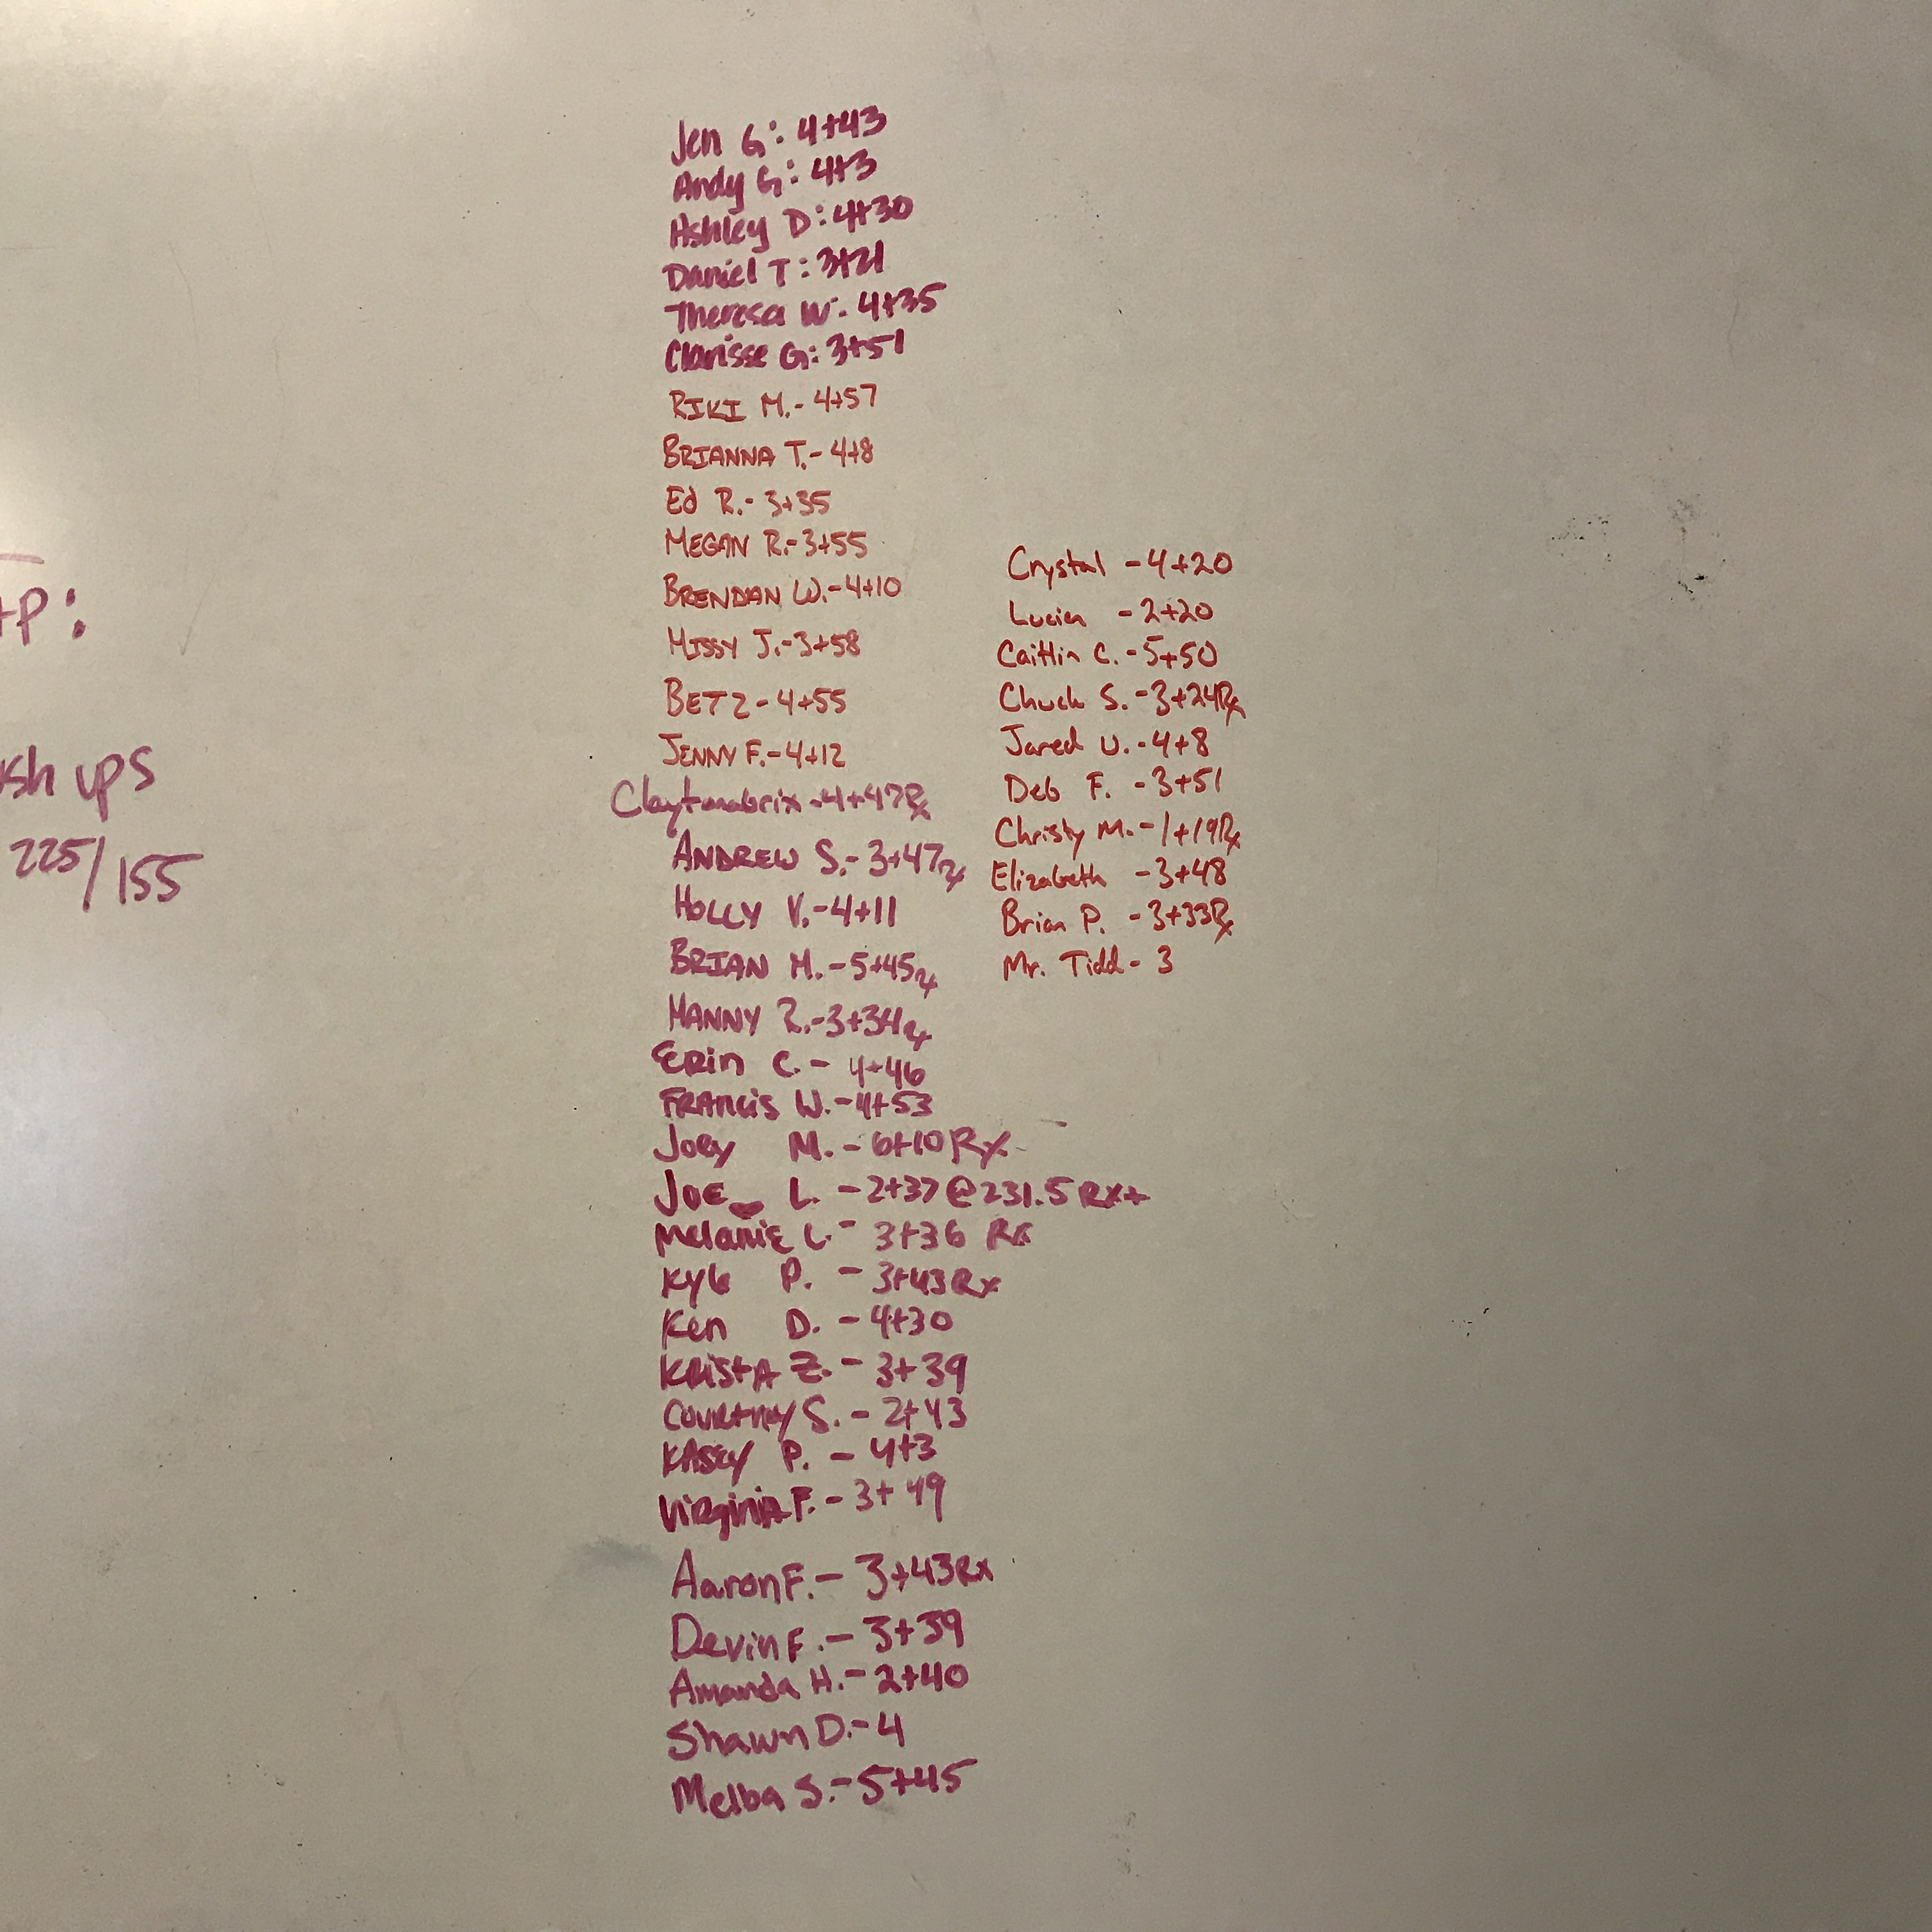 +P:
sh ups
225/155
Jen G: 4+43
Andy G: 4+3
Ashley D: 4+30
Daniel T: 3+21
Theresa W: 4+35
Clarisse G: 3+51
RIKI M.- 4+57
BRIANNA T.- 4+8
Ed R.- 3+35
MEGAN R.-3+55
BRENDAN W.-4+10
MISSY J.-3+58
BETZ- 4+55
JENNY F.-4+12
Claytmabrix -4+47Rx
ANDREW S.- 3+47Rx
HOLLY V.-4+11
BRIAN M.-5+45Rx
MANNY R.-3+34Rx
ERin C.- 4+46
FRANcis W.-4+53
Joey M.- 6+10 Rx
JOE L. -2+37@231.5 Rx+
Melanie L.- 3+36 Rx
Kyle P. - 3+43Rx
Ken D. - 4+30
KRistA Z. - 3+39
COURtney S. - 2+43
KAsey P. - 4+3
ViRginiA F. - 3+49
Aaron F.- 3+43Rx
Devin F.- 3+39
Amanda H.- 2+40
Shawn D.-4
Melba S.-5+45
Crystal -4+20
Lucien -2+20
Caitlin C.-5+50
Chuck S. -3+24Rx
Jared U.-4+8
Deb F. -3+51
Christy M.-1+19Rx
Elizabeth -3+48
Brian P. -3+33Rx
Mr. Tidd- 3